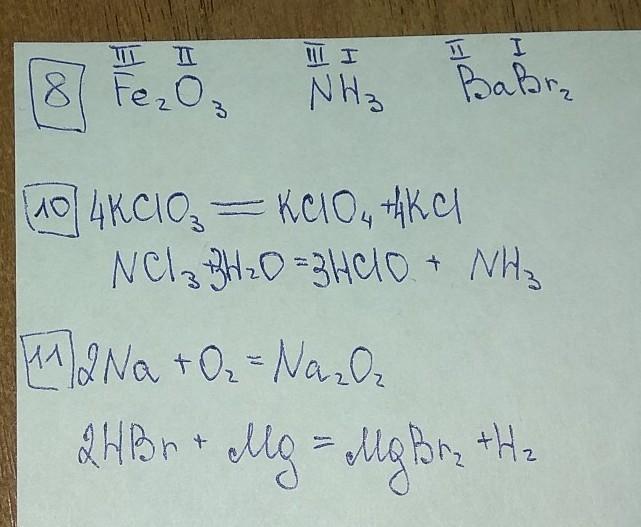 III II III I II I
8 Fe₂O₃ NH₃ BaBr₂
10 4KClO₃ = KClO₄ + 4KCl
NCl₃ + 3H₂O = 3HClO + NH₃
11 2Na + O₂ = Na₂O₂
2HBr + Mg = MgBr₂ + H₂